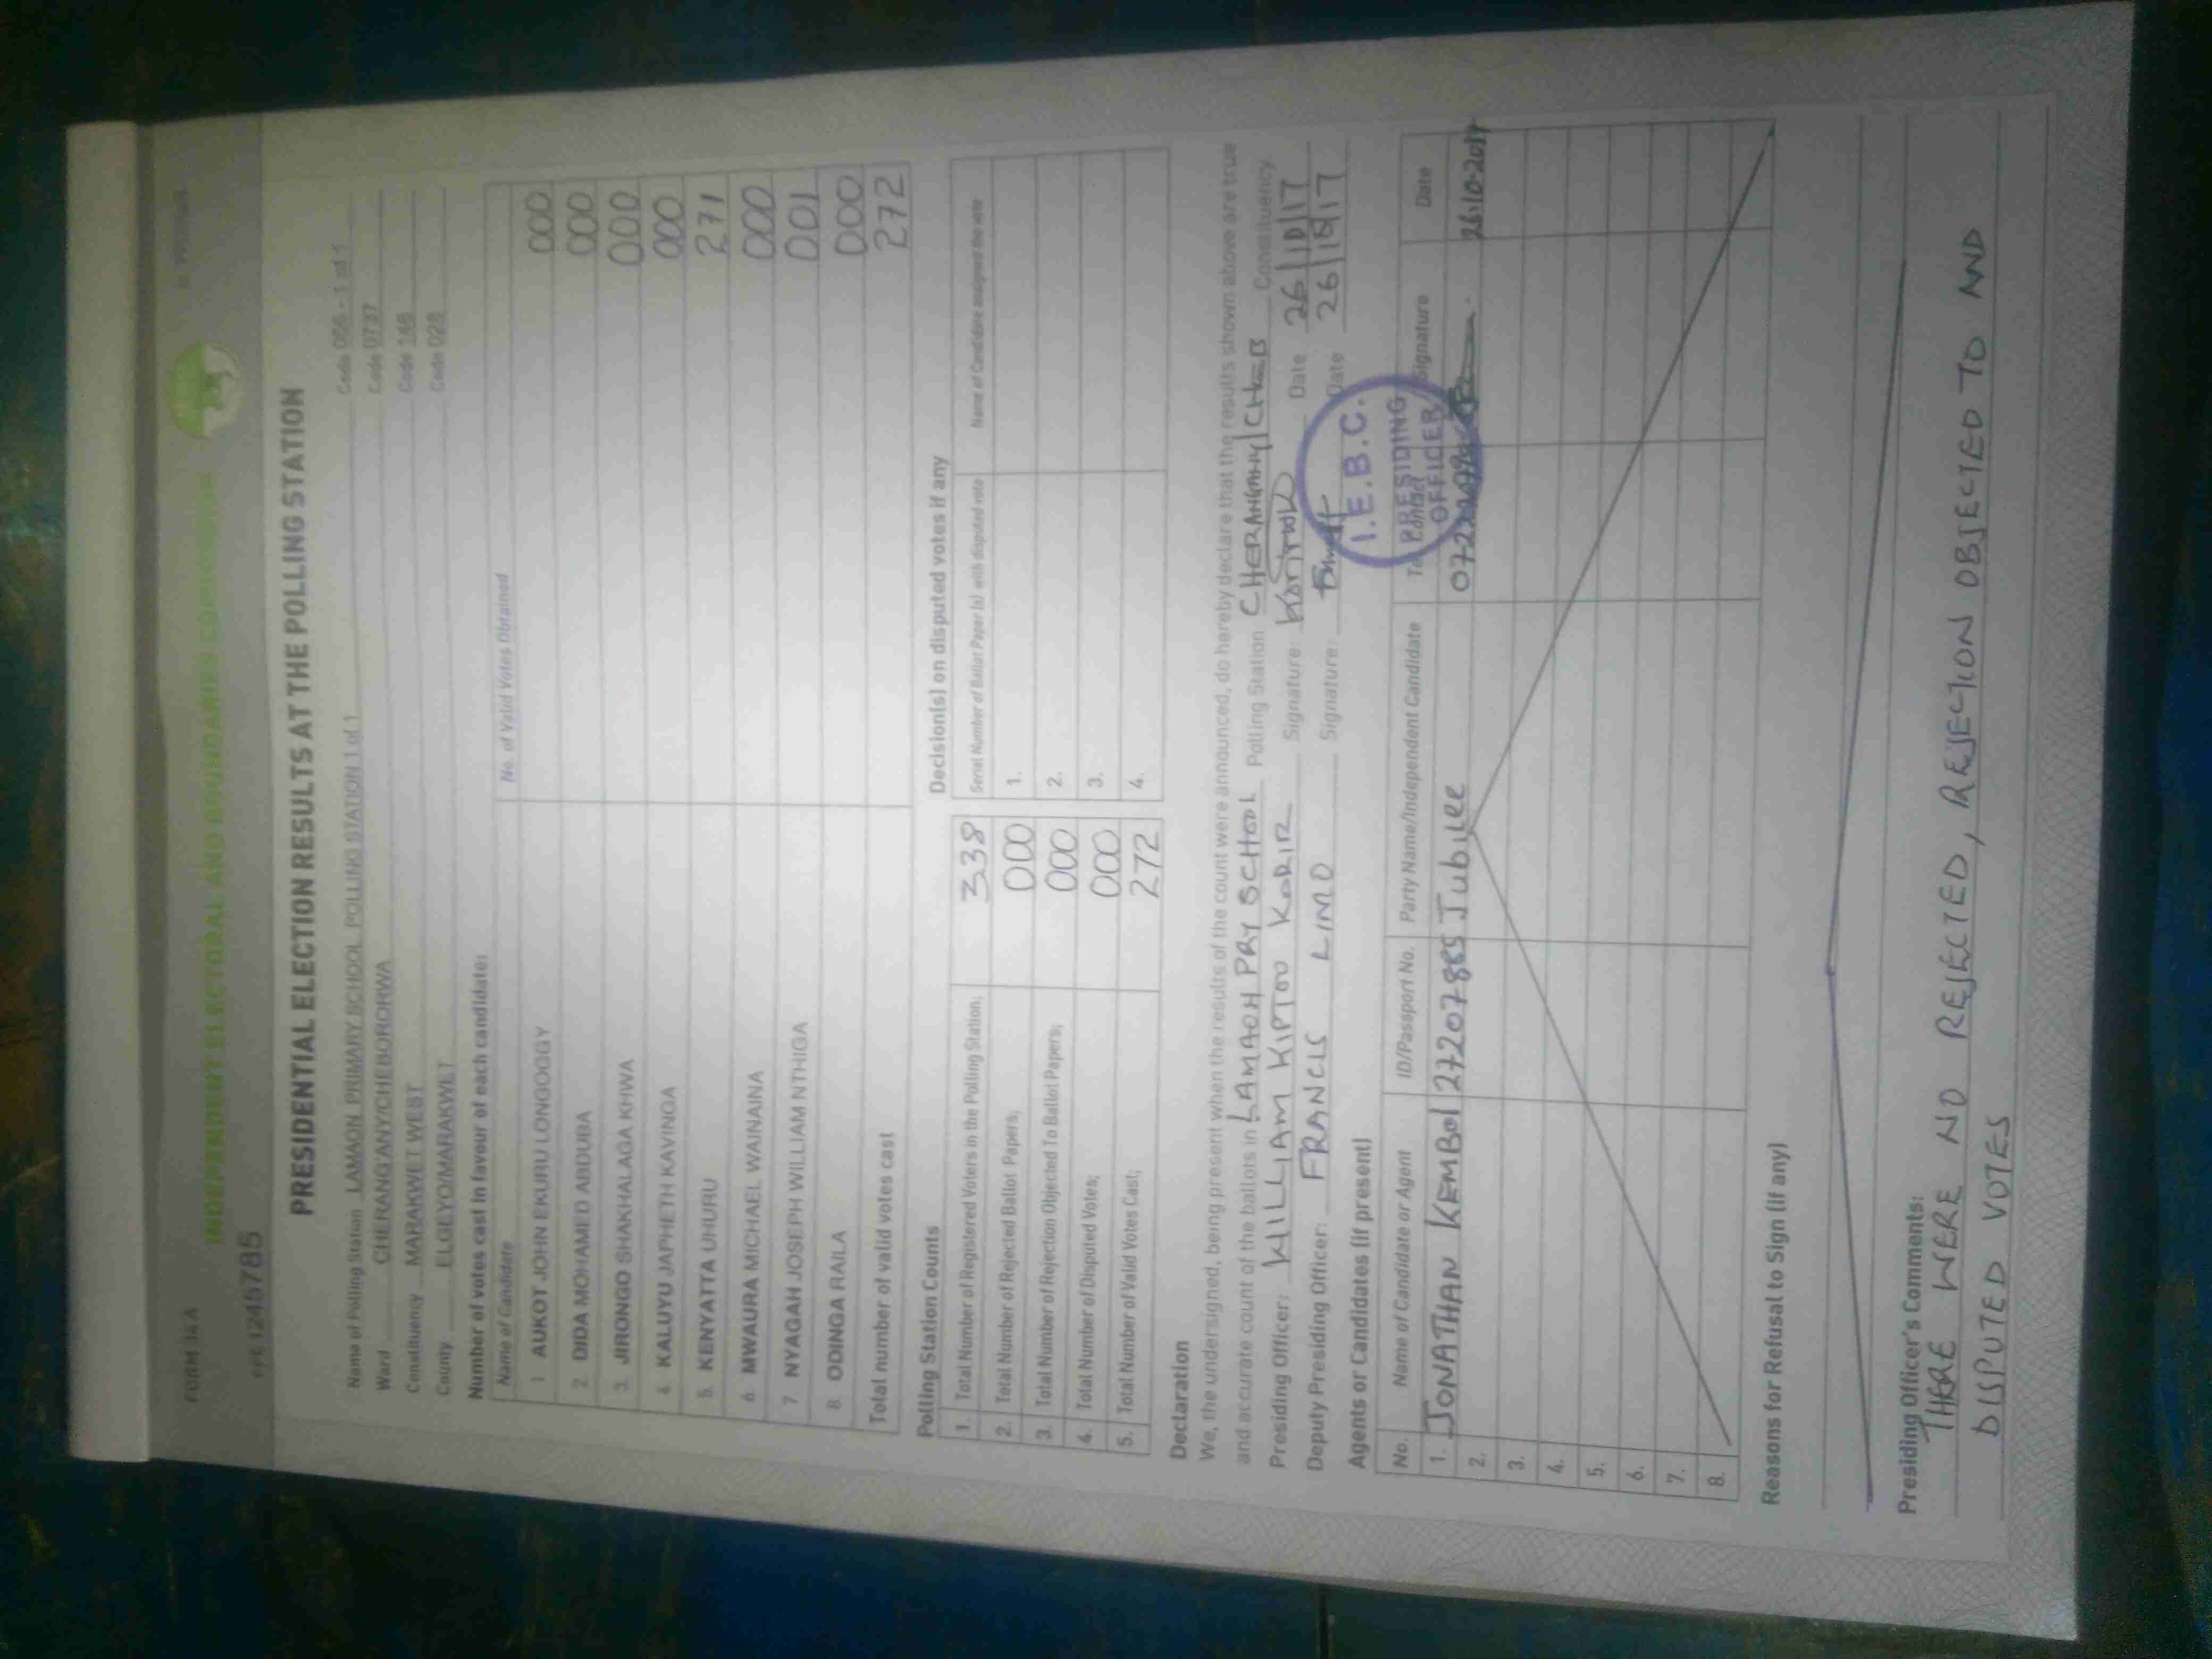 FORM 34A
INDEPENDENT ELECTORAL AND BOUNDARIES COMMISSION
PRESIDENTIAL ELECTION RESULTS AT THE POLLING STATION
Name of Polling Station LAMAON PRIMARY SCHOOL POLLING STATION 1 of 1 Code 056 - 1 of 1
Ward CHERANG'ANY/CHEBORORWA Code 0737
Constituency MARAKWET WEST Code 148
County ELGEYO/MARAKWET Code 028
Number of votes cast in favour of each candidate:
Name of Candidate No. of Valid Votes Obtained
1 AUKOT JOHN EKURU LONGOGGY 000
2 DIDA MOHAMED ABDUBA 000
3. JIRONGO SHAKHALAGA KHWA 000
4. KALUYU JAPHETH KAVINGA 000
5. KENYATTA UHURU 271
6 MWAURA MICHAEL WAINAINA 000
7. NYAGAH JOSEPH WILLIAM NTHIGA 001
8 ODINGA RAILA 000
Total number of valid votes cast 272
Polling Station Counts
1. Total Number of Registered Voters in the Polling Station; 338
2. Total Number of Rejected Ballot Papers; 000
3. Total Number of Rejection Objected To Ballot Papers; 000
4. Total Number of Disputed Votes; 000
5. Total Number of Valid Votes Cast; 272
Decision(s) on disputed votes if any
Serial Number of Ballot Paper (s) with disputed vote Name of Candidate assigned the vote
1.
2.
3.
4.
Declaration
We, the undersigned, being present when the results of the count were announced, do hereby declare that the results shown above are true
and accurate count of the ballots in LAMAOH PRY SCHOOL Polling Station CHERANGANY/CHEB Constituency.
Presiding Officer: WILLIAM KIPTOO KORIR Signature: Date 26/10/17
Deputy Presiding Officer: FRANCIS LIMO Signature: Date 26/10/17
I.E.B.C.
PRESIDING
OFFICER
Agents or Candidates (if present)
No. Name of Candidate or Agent ID/Passport No. Party Name/Independent Candidate Tel Contact Signature Date
1. JONATHAN KEMBOI 27207885 Jubilee 26.10.2017
2.
3.
4.
5.
6.
7.
8.
Reasons for Refusal to Sign (if any)
Presiding Officer's Comments:
THERE WERE NO REJECTED, REJECTION OBJECTED TO AND
DISPUTED VOTES